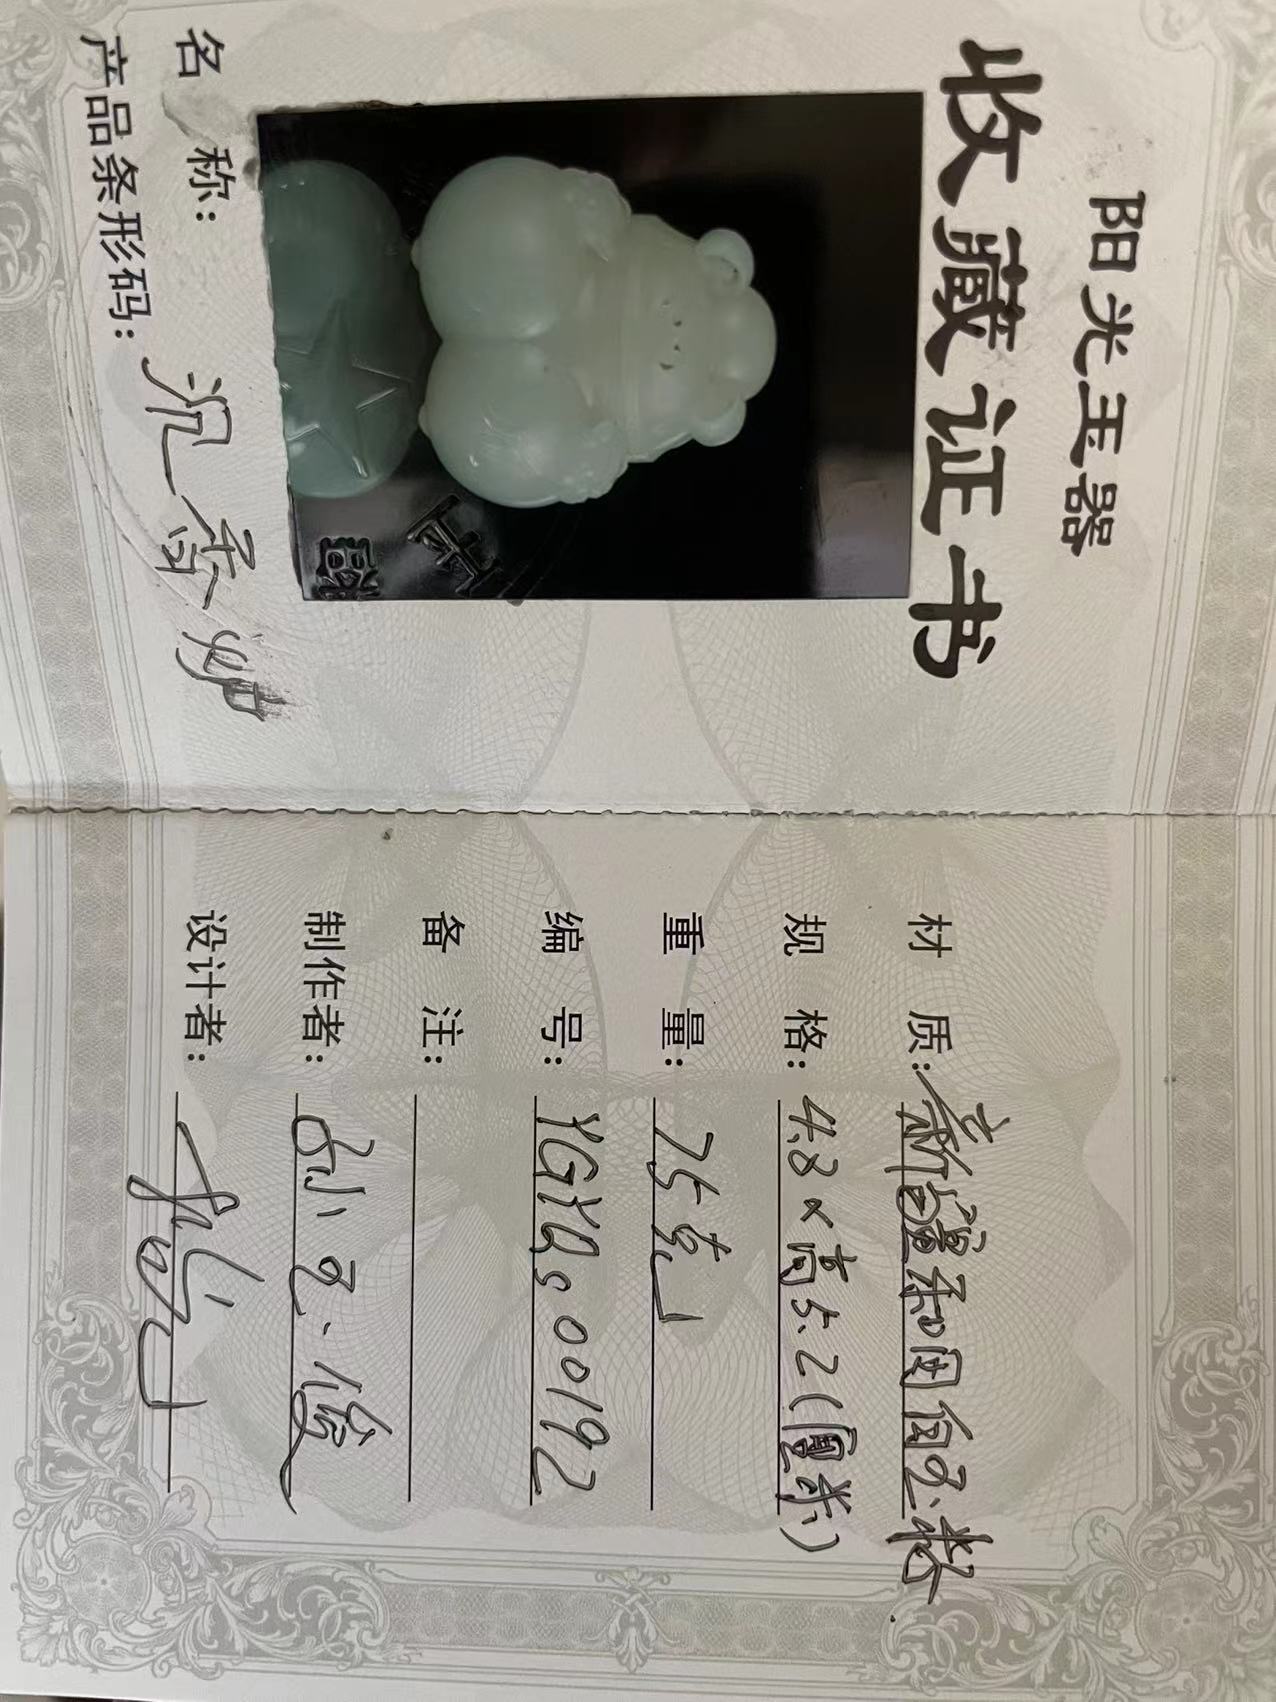 阳光玉器
收藏证书
名 称:
产品条形码:
材 质: 新疆和田白玉
规 格: 4.8×高5.2(圆形)
重 量: 75克
编 号: YGYQ.00192
备 注:
制作者:
设计者: